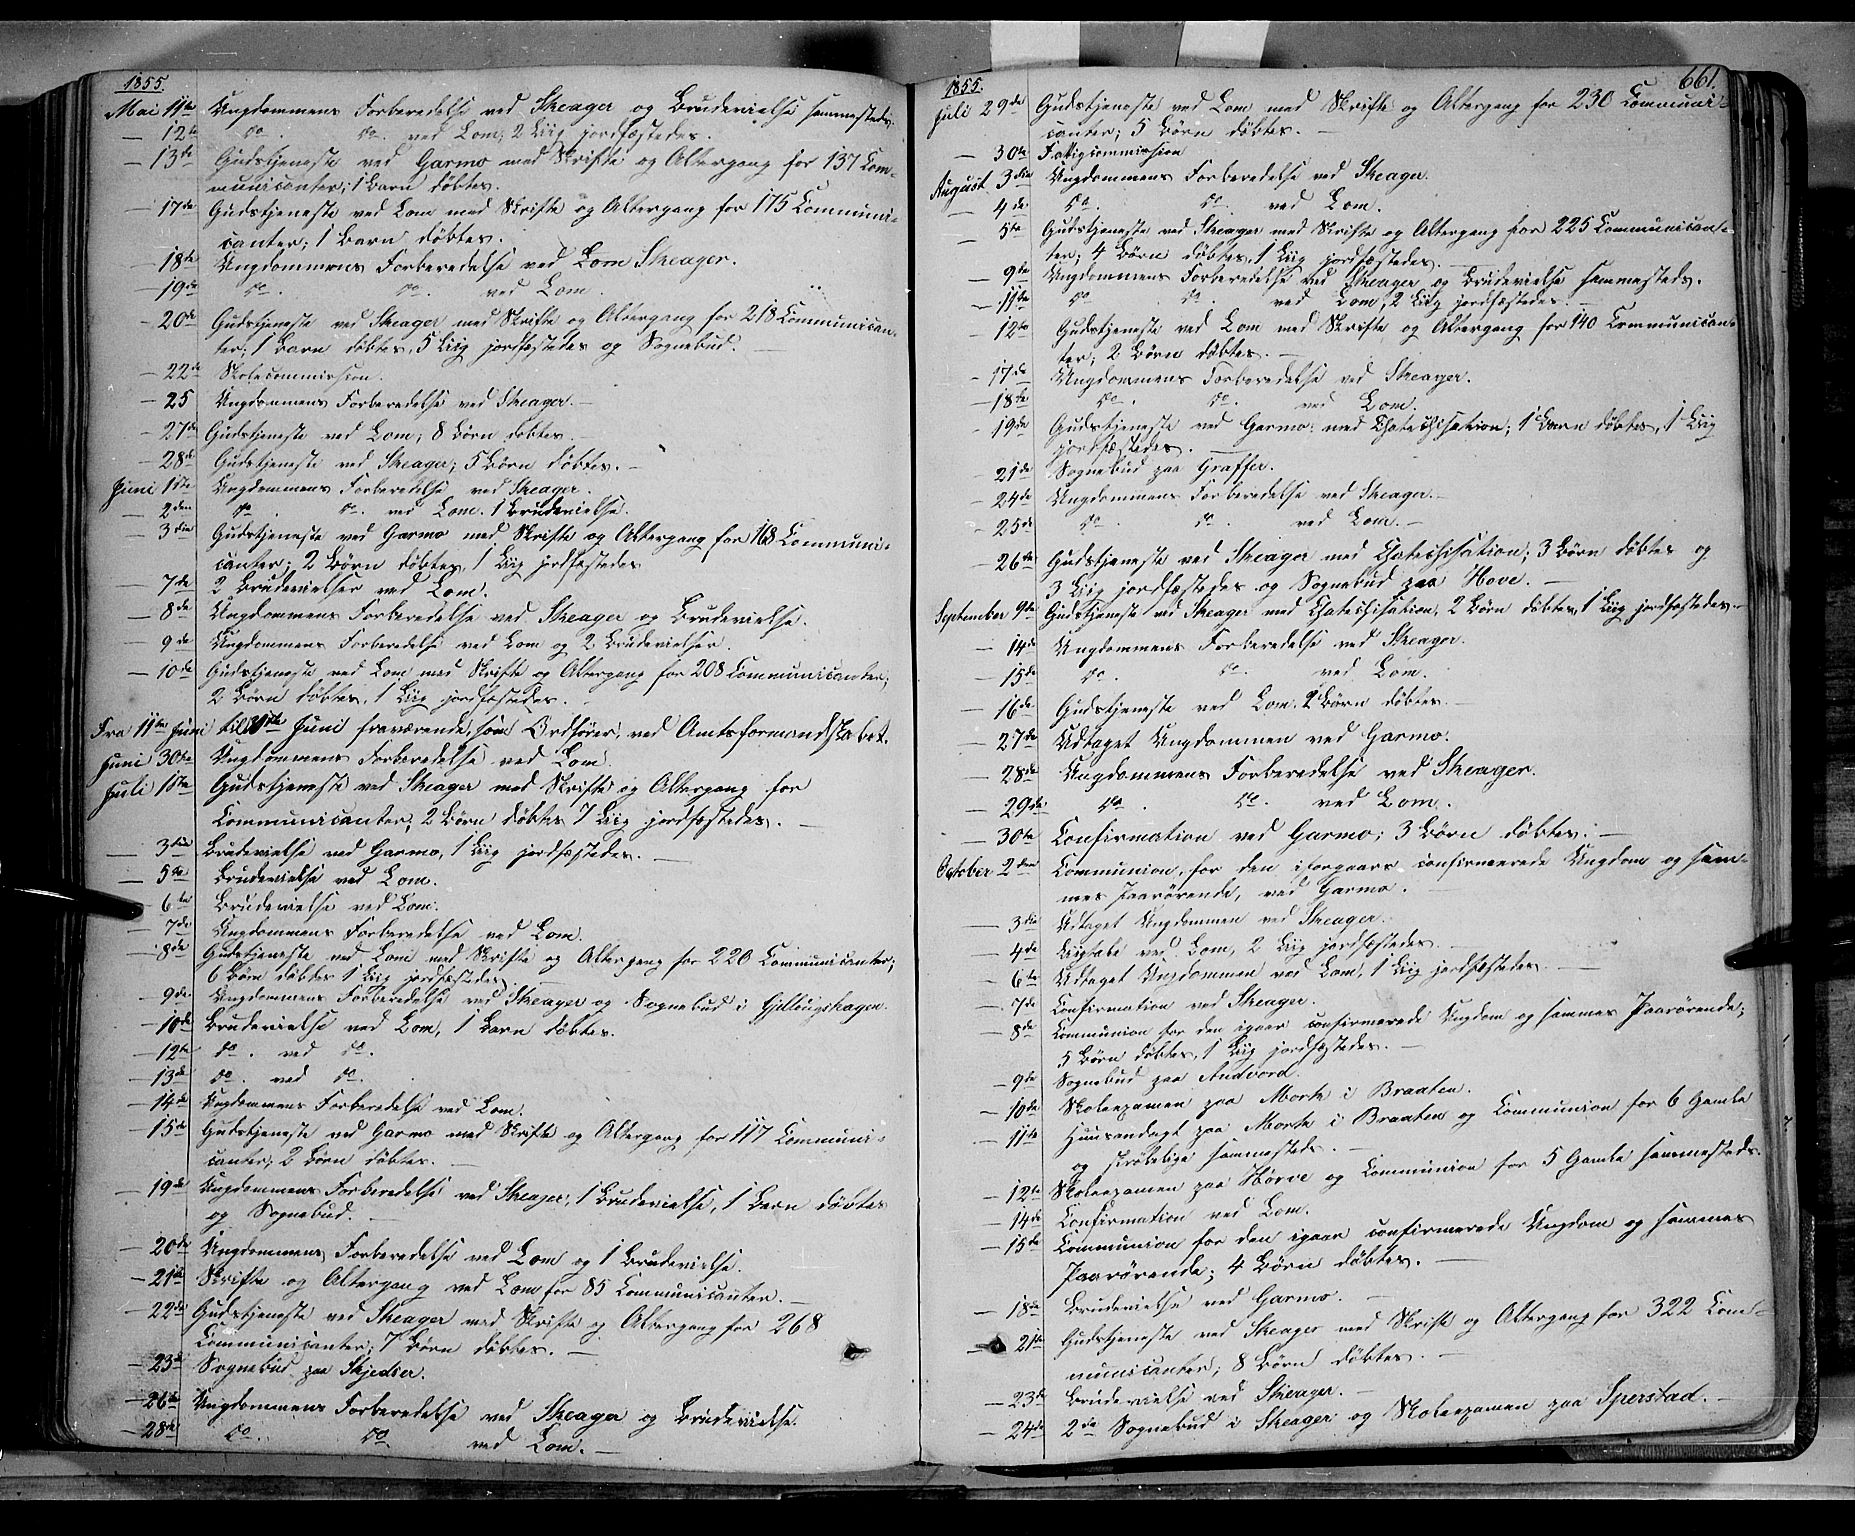 1855.
Mai 11te Ungdommens Forberedelse ved Skeager og Brudevielse sammesteds.
— 12te do. do. ved Lom; 2 Liig jordfæstedes.
— 13de Gudstjeneste ved Garmo med Skrifte og Altergang for 137 Com-
municanter; 1 Barn døbtes.
— 17de Gudstjeneste ved Lom med Skrifte og Altergang for 175 Communi-
canter; 1 Barn døbtes.
— 18de Ungdommens Forberedelse ved Lom Skeager.
— 19de do. do. ved Lom.
— 20de Gudstjeneste ved Skeager med Skrifte og Altergang for 218 Communican-
ter; 1 Barn døbtes, 5 Liig jordfæstedes og Sognebud. —
— 22de Skolecommission.
— 25 Ungdommens Forberedelse ved Skeager. —
— 27de Gudstjeneste ved Lom; 8 Børn døbtes. —
— 28de Gudstjeneste ved Skeager; 5 Børn døbtes. —
Juni 1ste Ungdommens Forberedelse ved Skeager.
— 2den do. do. ved Lom. 1 Brudevielse.
— 3die Gudstjeneste ved Garmo med Skrifte og Altergang for 168 Communi-
canter; 2 Børn døbtes, 1 Liig jordfæstedes
— 7de 2 Brudevielser ved Lom.
— 8de Ungdommens Forberedelse ved Skeager og Brudevielse.
— 9de Ungdommens Forberedelse ved Lom og 2 Brudevielser.
— 10de Gudstjeneste ved Lom med Skrifte og Altergang for 208 Communicanter;
2 Børn døbtes, 1 Liig jordfæstedes. —
Fra 11te Juni til Juni fraværende, som Ordfører, ved Amtsformandskabet.
Juni 30te Ungdommens Forberedelse ved Lom.
Juli 1ste Gudstjeneste ved Skeager med Skrifte og Altergang for
Communicanter; 2 Børn døbtes 7 Liig jordfæstedes. —
— 3die Brudevielse ved Garmo, 1 Liig jordfæstedes. —
— 5te Brudevielse ved Lom.
— 6te Brudevielse ved Lom.
— 7de Ungdommens Forberedelse ved Lom.
— 8de Gudstjeneste ved Lom med Skrifte og Altergang for 220 Communicanter;
6 Børn døbtes 1 Liig jordfæstedes. —
— 9de Ungdommens Forberedelse ved Skeager og Sognebud i Gjeilbugshagen.
— 10de Brudevielse ved Lom, 1 Barn døbtes.
— 12te do. ved do.
— 13de do. ved do.
— 14de Ungdommens Forberedelse ved Lom.
— 15de Gudstjeneste ved Garmo med Skrifte og Altergang for 117 Communi-
canter; 2 Børn døbtes. —
— 19de Ungdommens Forberedelse ved Skeager; 1 Brudevielse, 1 Barn døbtes
og Sognebud. —
— 20de Ungdommens Forberedelse ved Lom og 1 Brudevielse.
— 21de Skrifte og Altergang ved Lom for 85 Communicanter. —
— 22de Gudstjeneste ved Skeager med Skrifte og Altergang for 268
Communicanter; 7 Børn døbtes. —
— 23de Sognebud paa Skjedser.
— 26de Ungdommens Forberedelse ved Skeager og Brudevielse.
— 28de do. do. ved Lom. —
661.
1855.
Juli 29de Gudstjeneste ved Lom med Skrifte og Altergang for 230 Communi-
canter; 5 Børn døbtes. —
— 30te Fattigcommission
August 3die Ungdommens Forberedelse ved Skeager.
— 4de do. do. ved Lom.
— 5te Gudstjeneste ved Skeager med Skrifte og Altergang for 225 Communican-
ter; 4 Børn døbtes, 1 Liig jordfæstedes. —
— 9de Ungdommens Forberedelse ved Skeager og Brudevielse sammesteds.
— 11te do. do. ved Lom, 2 Liig jordfæstedes. —
— 12te Gudstjeneste ved Lom med Skrifte og Altergang for 140 Communican-
ter; 2 Børn døbtes. —
— 17de Ungdommens Forberedelse ved Skeager.
— 18de do. do. ved Lom.
— 19de Gudstjeneste ved Garmo med Chatechisation; 1 Barn døbtes, 1 Liig
jordfæstedes. —
— 21de Sognebud paa Graffer.
— 24de Ungdommens Forberedelse ved Skeager. —
— 25de do. do. ved Lom. —
— 26de Gudstjeneste ved Skeager med Chatechisation; 3 Børn døbtes og
3 Liig jordfæstedes og Sognebud paa Hove. —
September 9de Gudstjeneste ved Skeager med Chatechisation, 2 Børn døbtes, 1 Liig jordfæstedes. —
— 14de Ungdommens Forberedelse ved Skeager.
— 15de do. do. ved Lom.
— 16de Gudstjeneste ved Lom. 2 Børn døbtes. —
— 27de Udtaget Ungdommen ved Garmo.
— 28de Ungdommens Forberedelse ved Skeager.
— 29de do. do. ved Lom.
— 30te Confirmation ved Garmo; 3 Børn døbtes. —
October 2den Communion, for den iforgaars confirmerede Ungdom og sam-
mes Paarørende, ved Garmo. —
— 3die Udtaget Ungdommen ved Skeager.
— 4de ved Lom, 2 Liig jordfæstedes. —
— 6te Udtaget Ungdommen ved Lom, 1 Liig jordfæstedes. —
— 7de Confirmation ved Skeager.
— 8de Communion for den igaar confirmerede Ungdom og sammes Paarørende;
5 Børn døbtes, 1 Liig jordfæstedes. —
— 9de Sognebud paa Andvord.
— 10de Skoleexamen paa Mork i Braaten.
— 11te Huusandagt paa Mork i Braaten og Communion for 6 Gamle
og skrøbelige sammesteds. —
— 12te Skoleexamen paa Hørve og Communion for 5 Gamle sammesteds.
— 14de Confirmation ved Lom.
— 15de Communion for den igaar confirmerede Ungdom og sammes
Paarørende; 4 Børn døbtes. —
— 18de Brudevielse ved Garmo. —
— 21de Gudstjeneste ved Skeager med Skrifte og Altergang for 322 Com-
municanter; 8 Børn døbtes. —
— 23de Brudevielse ved Skeager. —
— 24de 2de Sognebud i Skeager og Skoleexamen paa Sperstad. —